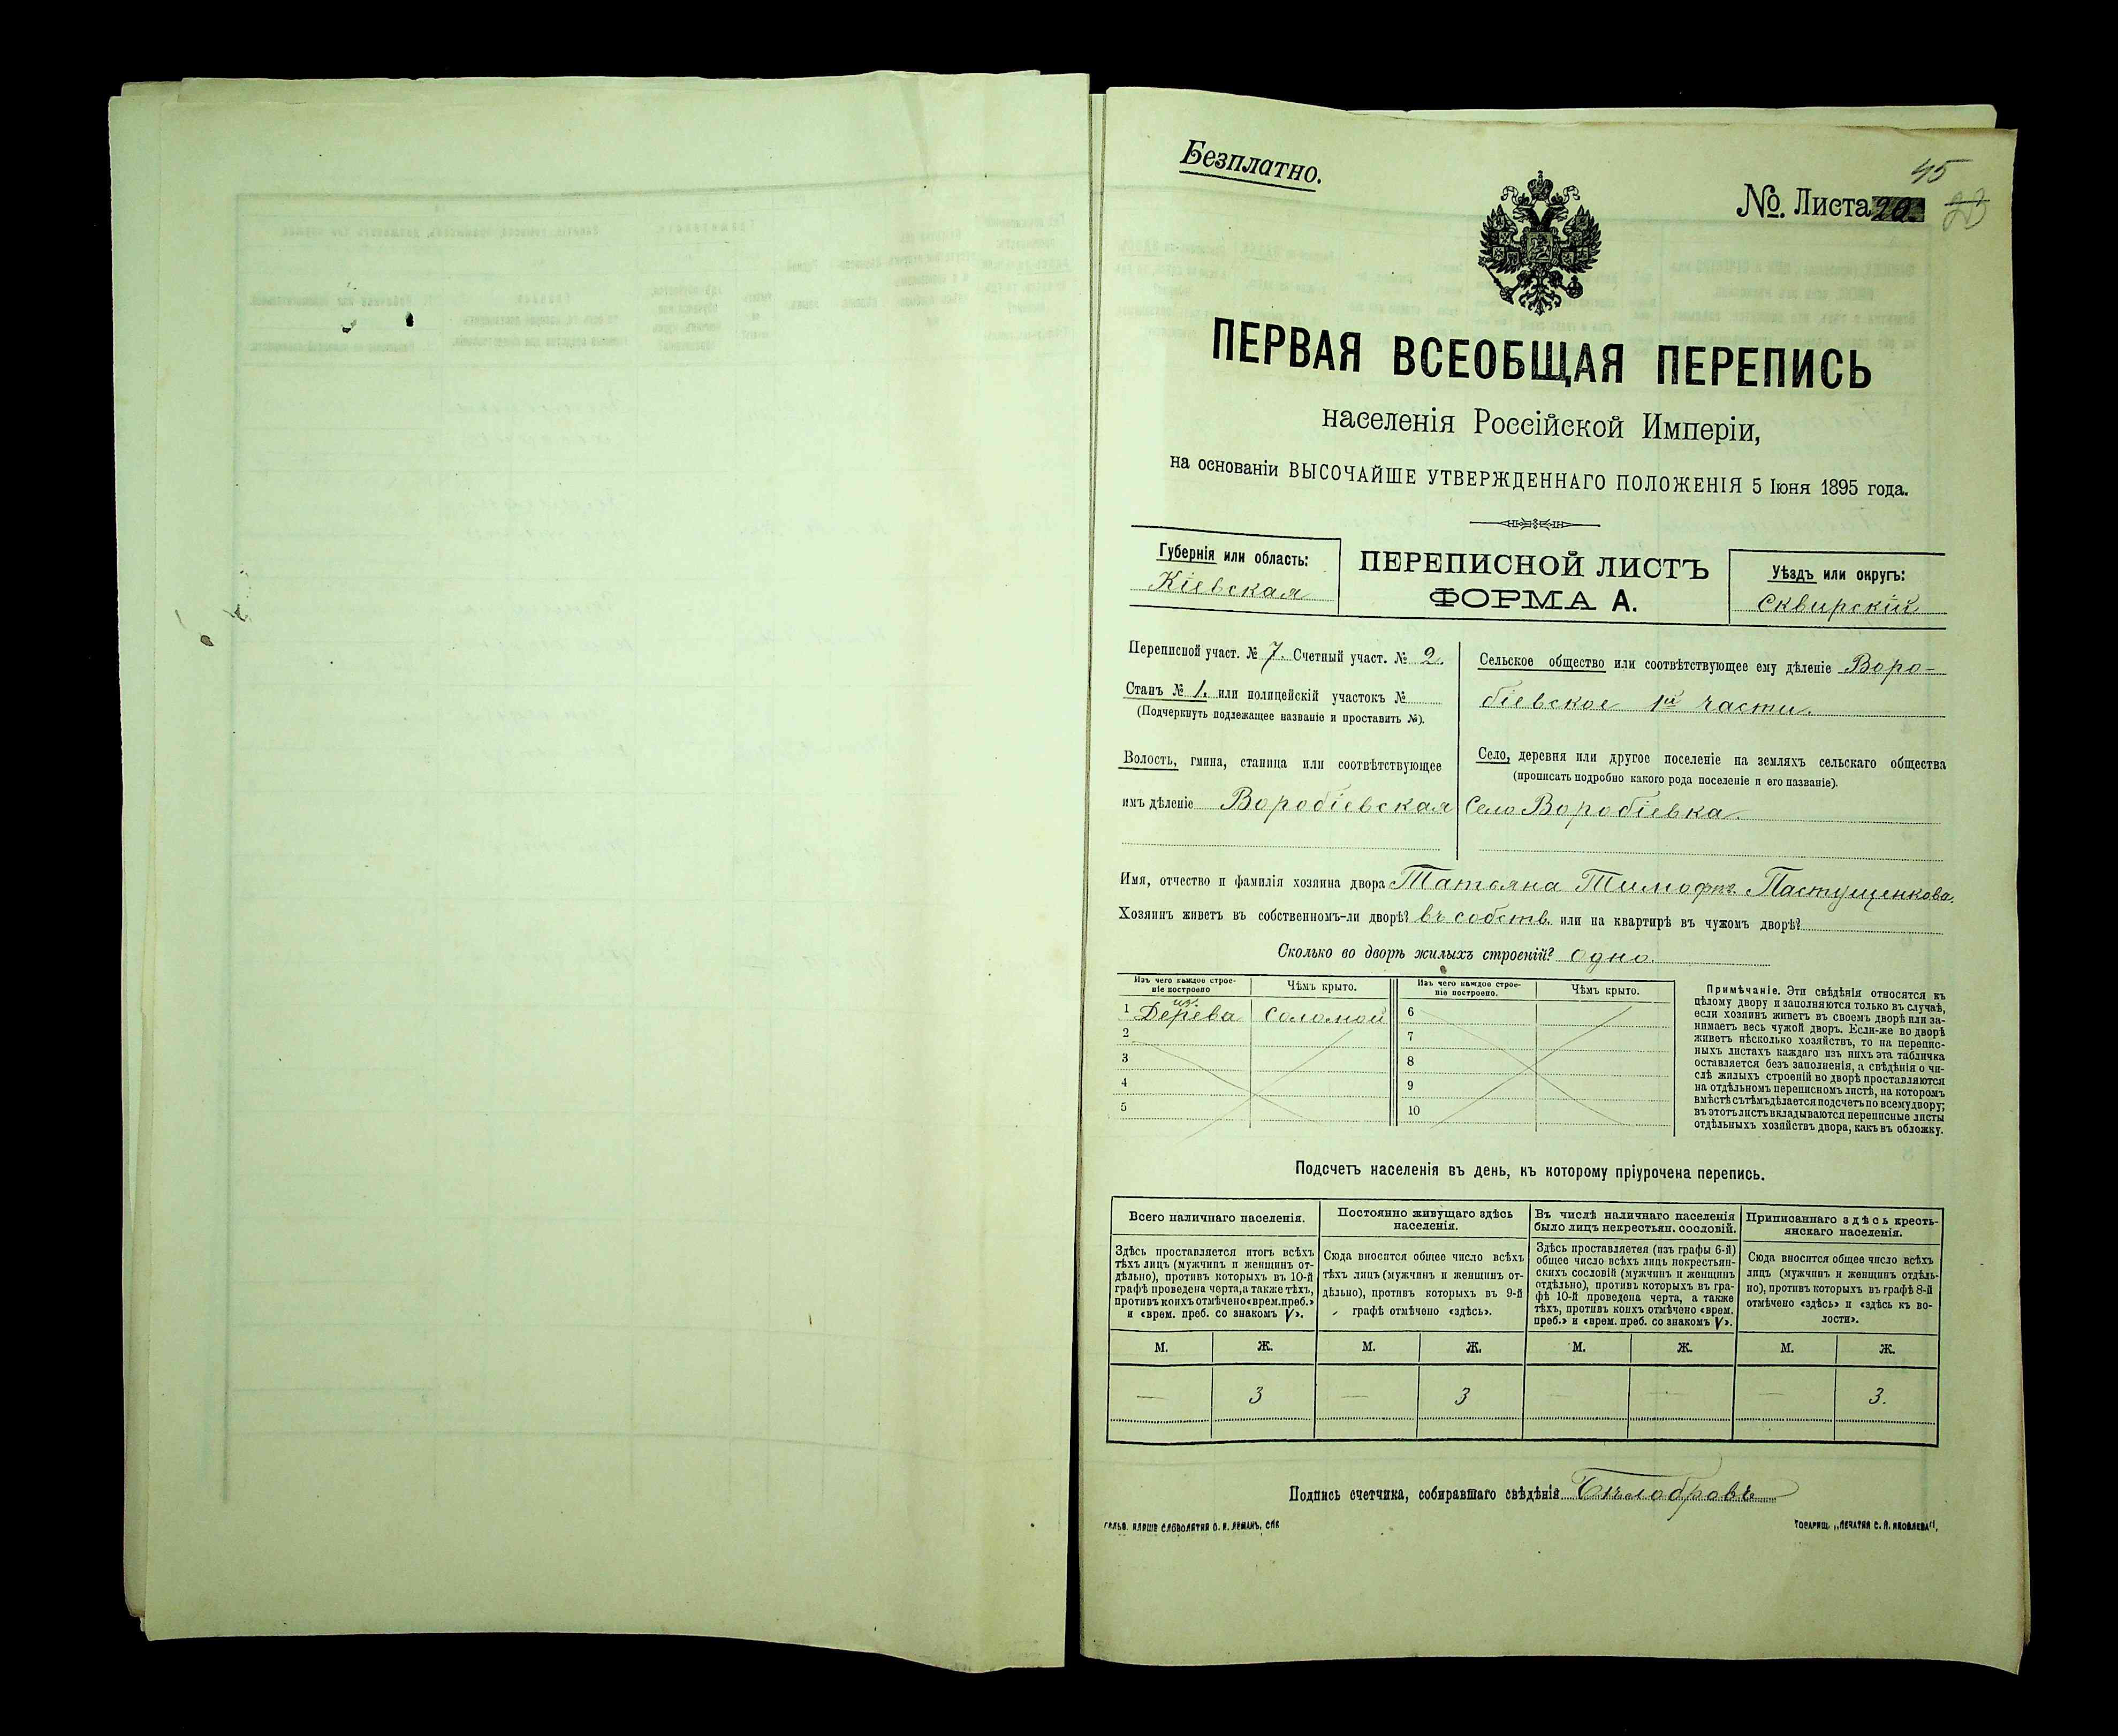 Безплатно.
45
№. Листа 20.
ПЕРВАЯ ВСЕОБЩАЯ ПЕРЕПИСЬ
населенія Россійской Имперіи,
на основаніи ВЫСОЧАЙШЕ УТВЕРЖДЕННАГО ПОЛОЖЕНІЯ 5 Іюня 1895 года.
Губернія или область:
Кіевская
ПЕРЕПИСНОЙ ЛИСТЪ
ФОРМА А.
Уѣздъ или округъ:
Сквирскій
Переписной участ. № 7. Счетный участ. № 2.
Станъ № 1. или полицейскій участокъ №
(Подчеркнуть подлежащее названіе и проставить №).
Волость, гмина, станица или соотвѣтствующее
имъ дѣленіе Воробіевская
Сельское общество или соотвѣтствующее ему дѣленіе Воро-
біевское 1й части.
Село, деревня или другое поселеніе на земляхъ сельскаго общества
(прописать подробно какого рода поселеніе и его названіе).
Село Воробіевка.
Имя, отчество и фамилія хозяина двора Татьяна Тимофѣ. Пастущенкова.
Хозяинъ живетъ въ собственномъ-ли дворѣ? въ собств. или на квартирѣ въ чужомъ дворѣ?
Сколько во дворѣ жилыхъ строеній? одно.
Изъ чего каждое строе-
ніе построено
Чѣмъ крыто.
Изъ чего каждое строе-
ніе построено.
Чѣмъ крыто.
1 из. Дерева соломой
2
3
4
5
6
7
8
9
10
Примѣчаніе. Эти свѣдѣнія относятся къ
цѣлому двору и заполняются только въ случаѣ,
если хозяинъ живетъ въ своемъ дворѣ или за-
нимаетъ весь чужой дворъ. Если-же во дворѣ
живетъ нѣсколько хозяйствъ, то на перепис-
ныхъ листахъ каждаго изъ нихъ эта табличка
оставляется безъ заполненія, а свѣдѣнія о чи-
слѣ жилыхъ строеній во дворѣ проставляются
на отдѣльномъ переписномъ листѣ, на которомъ
вмѣстѣ съ тѣмъ дѣлается подсчетъ по всему двору;
въ этотъ листъ вкладываются переписные листы
отдѣльныхъ хозяйствъ двора, какъ въ обложку.
Подсчетъ населенія въ день, къ которому пріурочена перепись.
Всего наличнаго населенія.
Здѣсь проставляется итогъ всѣхъ
тѣхъ лицъ (мужчинъ и женщинъ от-
дѣльно), противъ которыхъ въ 10-й
графѣ проведена черта, а также тѣхъ,
противъ коихъ отмѣчено «врем. преб.»
и «врем. преб. со знакомъ V».
Постоянно живущаго здѣсь
населенія.
Сюда вносится общее число всѣхъ
тѣхъ лицъ (мужчинъ и женщинъ от-
дѣльно), противъ которыхъ въ 9-й
графѣ отмѣчено «здѣсь».
Въ числѣ наличнаго населенія
было лицъ некрестьян. сословій.
Здѣсь проставляется (изъ графы 6-й)
общее число всѣхъ лицъ некрестьян-
скихъ сословій (мужчинъ и женщинъ
отдѣльно), противъ которыхъ въ гра-
фѣ 10-й проведена черта, а также
тѣхъ, противъ коихъ отмѣчено «врем.
преб.» и «врем. преб. со знакомъ V».
Приписаннаго здѣсь кресть-
янскаго населенія.
Сюда вносится общее число всѣхъ
лицъ (мужчинъ и женщинъ отдѣль-
но), противъ которыхъ въ графѣ 8-й
отмѣчено «здѣсь» и «здѣсь къ во-
лости».
М. Ж. М. Ж. М. Ж. М. Ж.
— 3 — 3 — — — 3.
Подпись счетчика, собиравшаго свѣдѣнія Бѣлобровъ
ГАЛЬВ. КЛИШЕ СЛОВОЛИТНИ О. И. ЛЕМАНЪ, СПБ
ТОВАРИЩ. „ПЕЧАТНЯ С. П. ЯКОВЛЕВА".